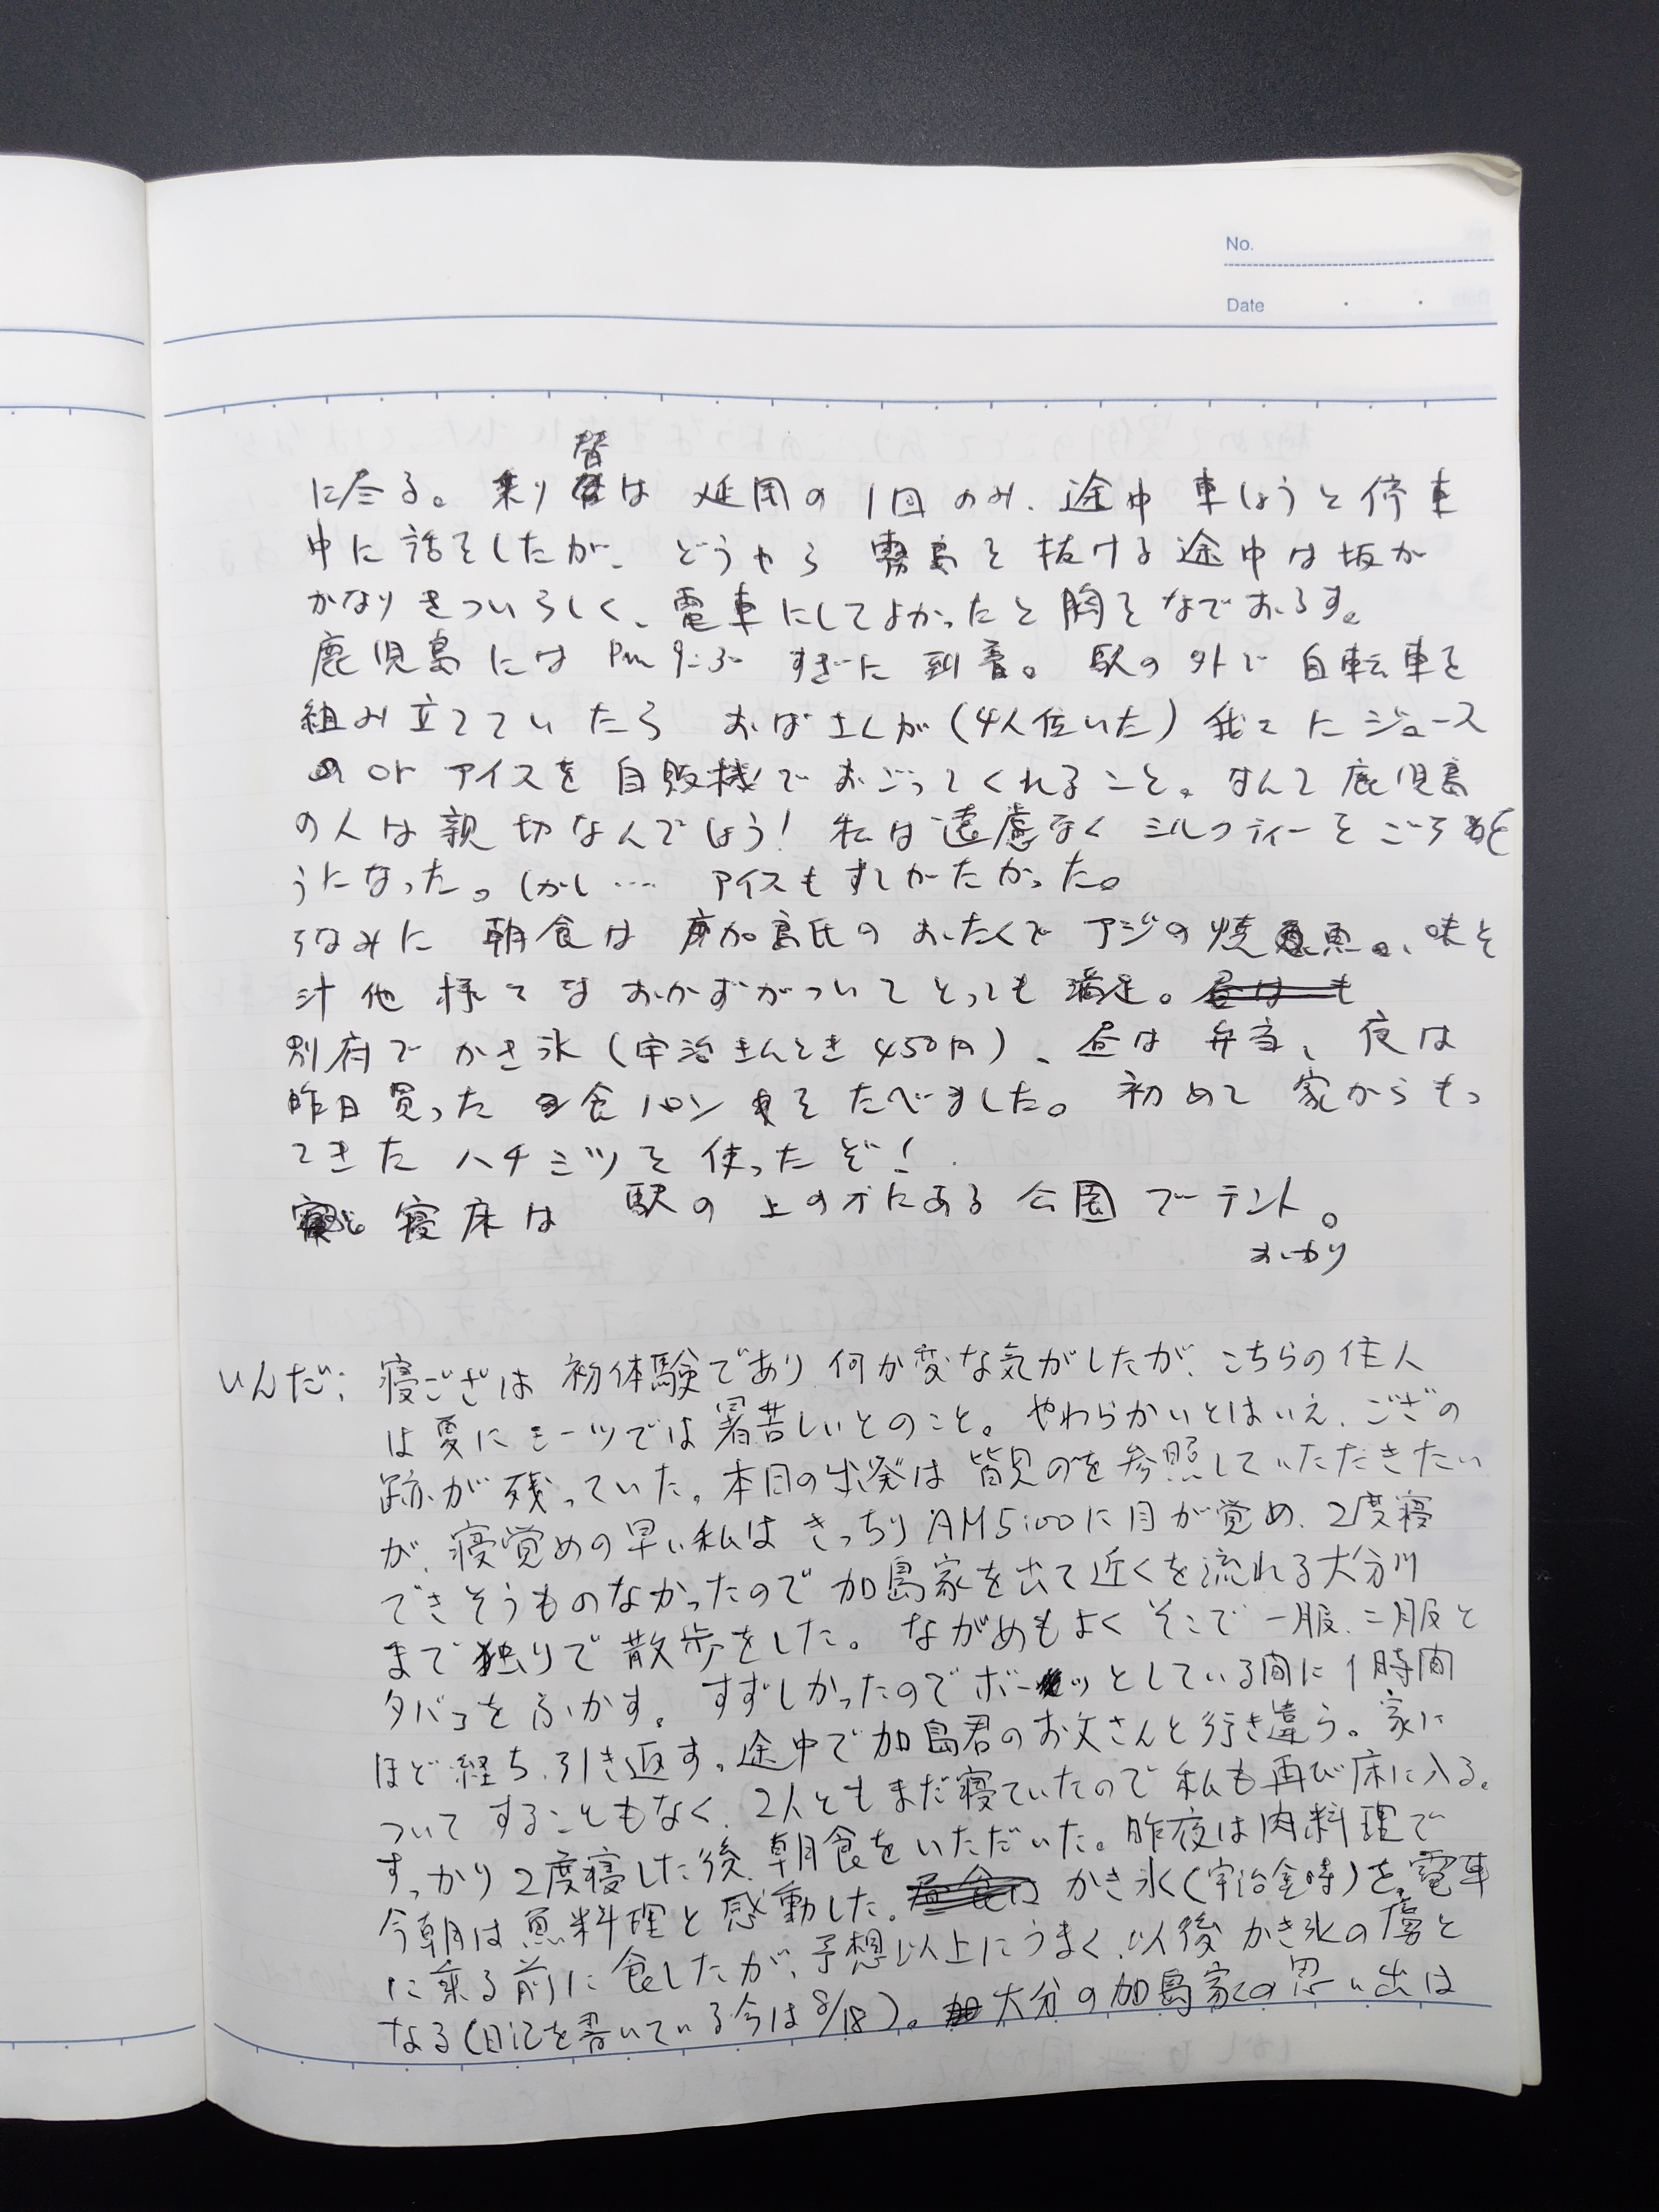 No.
Date
に尽る。乗り替は延岡の1回のみ、途中車しょうと停車
中に話をしたが、どうやら霧島を抜ける途中は坂が
かなりきついらしく、電車にしてよかったと胸をなでおろす。
鹿児島にはPm 9:30すぎに到着。駅の外で自転車を
組み立てていたらおばさんが(4人位いた)我々にジュース
orアイスを自販機でおごってくれること。なんて鹿児島
の人は親切なんでしょう!私は遠慮なくミルクティーをごちそ
うになった。しかし…アイスもすてがたかった。
ちなみに朝食は加島氏のおたくでアジの焼魚、味そ
汁他様々なおかずがついてとっても満足。
別府でかき氷(宇治きんとき450円)、昼は弁当、夜は
昨日買った食パンをたべました。初めて家からもっ
てきたハチミツを使ったぞ!
寝床は駅の上の方にある公園でテント。
おわり
いんだ; 寝ござは初体験であり何か変な気がしたが、こちらの住人
は夏にモーツでは暑苦しいとのこと。やわらかいとはいえ、ござの
跡が残っていた。本日の出発は皆見のを参照していただきたい
が、寝覚めの早い私はきっちりAM5:00に目が覚め、2度寝
できそうものなかったので加島家を出て近くを流れる大分川
まで独りで散歩をした。ながめもよくそこで一服、二服と
タバコをふかす。すずしかったのでボーッとしている間に1時間
ほど経ち、引き返す。途中で加島君のお父さんと行き違う。家に
ついてすることもなく、2人ともまだ寝ていたので私も再び床に入る。
すっかり2度寝した後、朝食をいただいた。昨夜は肉料理で
今朝は魚料理と感動した。かき氷(宇治金時)を電車
に乗る前に食したが、予想以上にうまく、以後かき氷の虜と
なる(日記を書いている今は8/18)。大分の加島家での思い出は